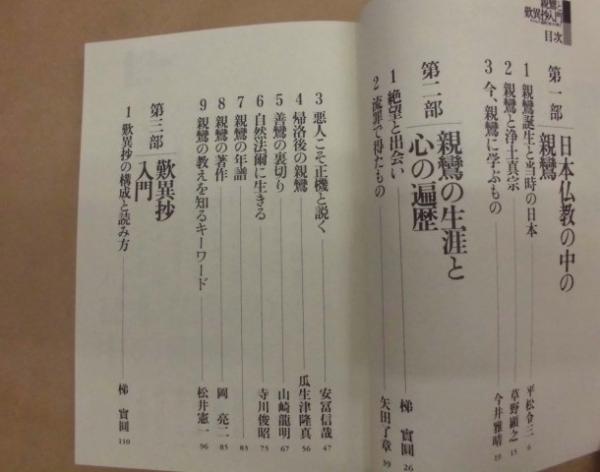 親鸞と
歎異抄入門
目次
第一部 日本仏教の中の
親鸞
1 親鸞誕生と当時の日本 平松令三 6
2 親鸞と浄土真宗 草野顕之 15
3 今、親鸞に学ぶもの 今井雅晴 19
第二部 親鸞の生涯と
心の遍歴
1 絶望と出会い 梯 實圓 26
2 流罪で得たもの 矢田了章 39
3 悪人こそ正機と説く 安冨信哉 47
4 帰洛後の親鸞 瓜生津隆真 56
5 善鸞の裏切り 山崎龍明 67
6 自然法爾に生きる 寺川俊昭 75
7 親鸞の年譜 83
8 親鸞の著作 岡 亮二 85
9 親鸞の教えを知るキーワード 松井憲一 96
第三部 歎異抄
入門
1 歎異抄の構成と読み方 梯 實圓 110